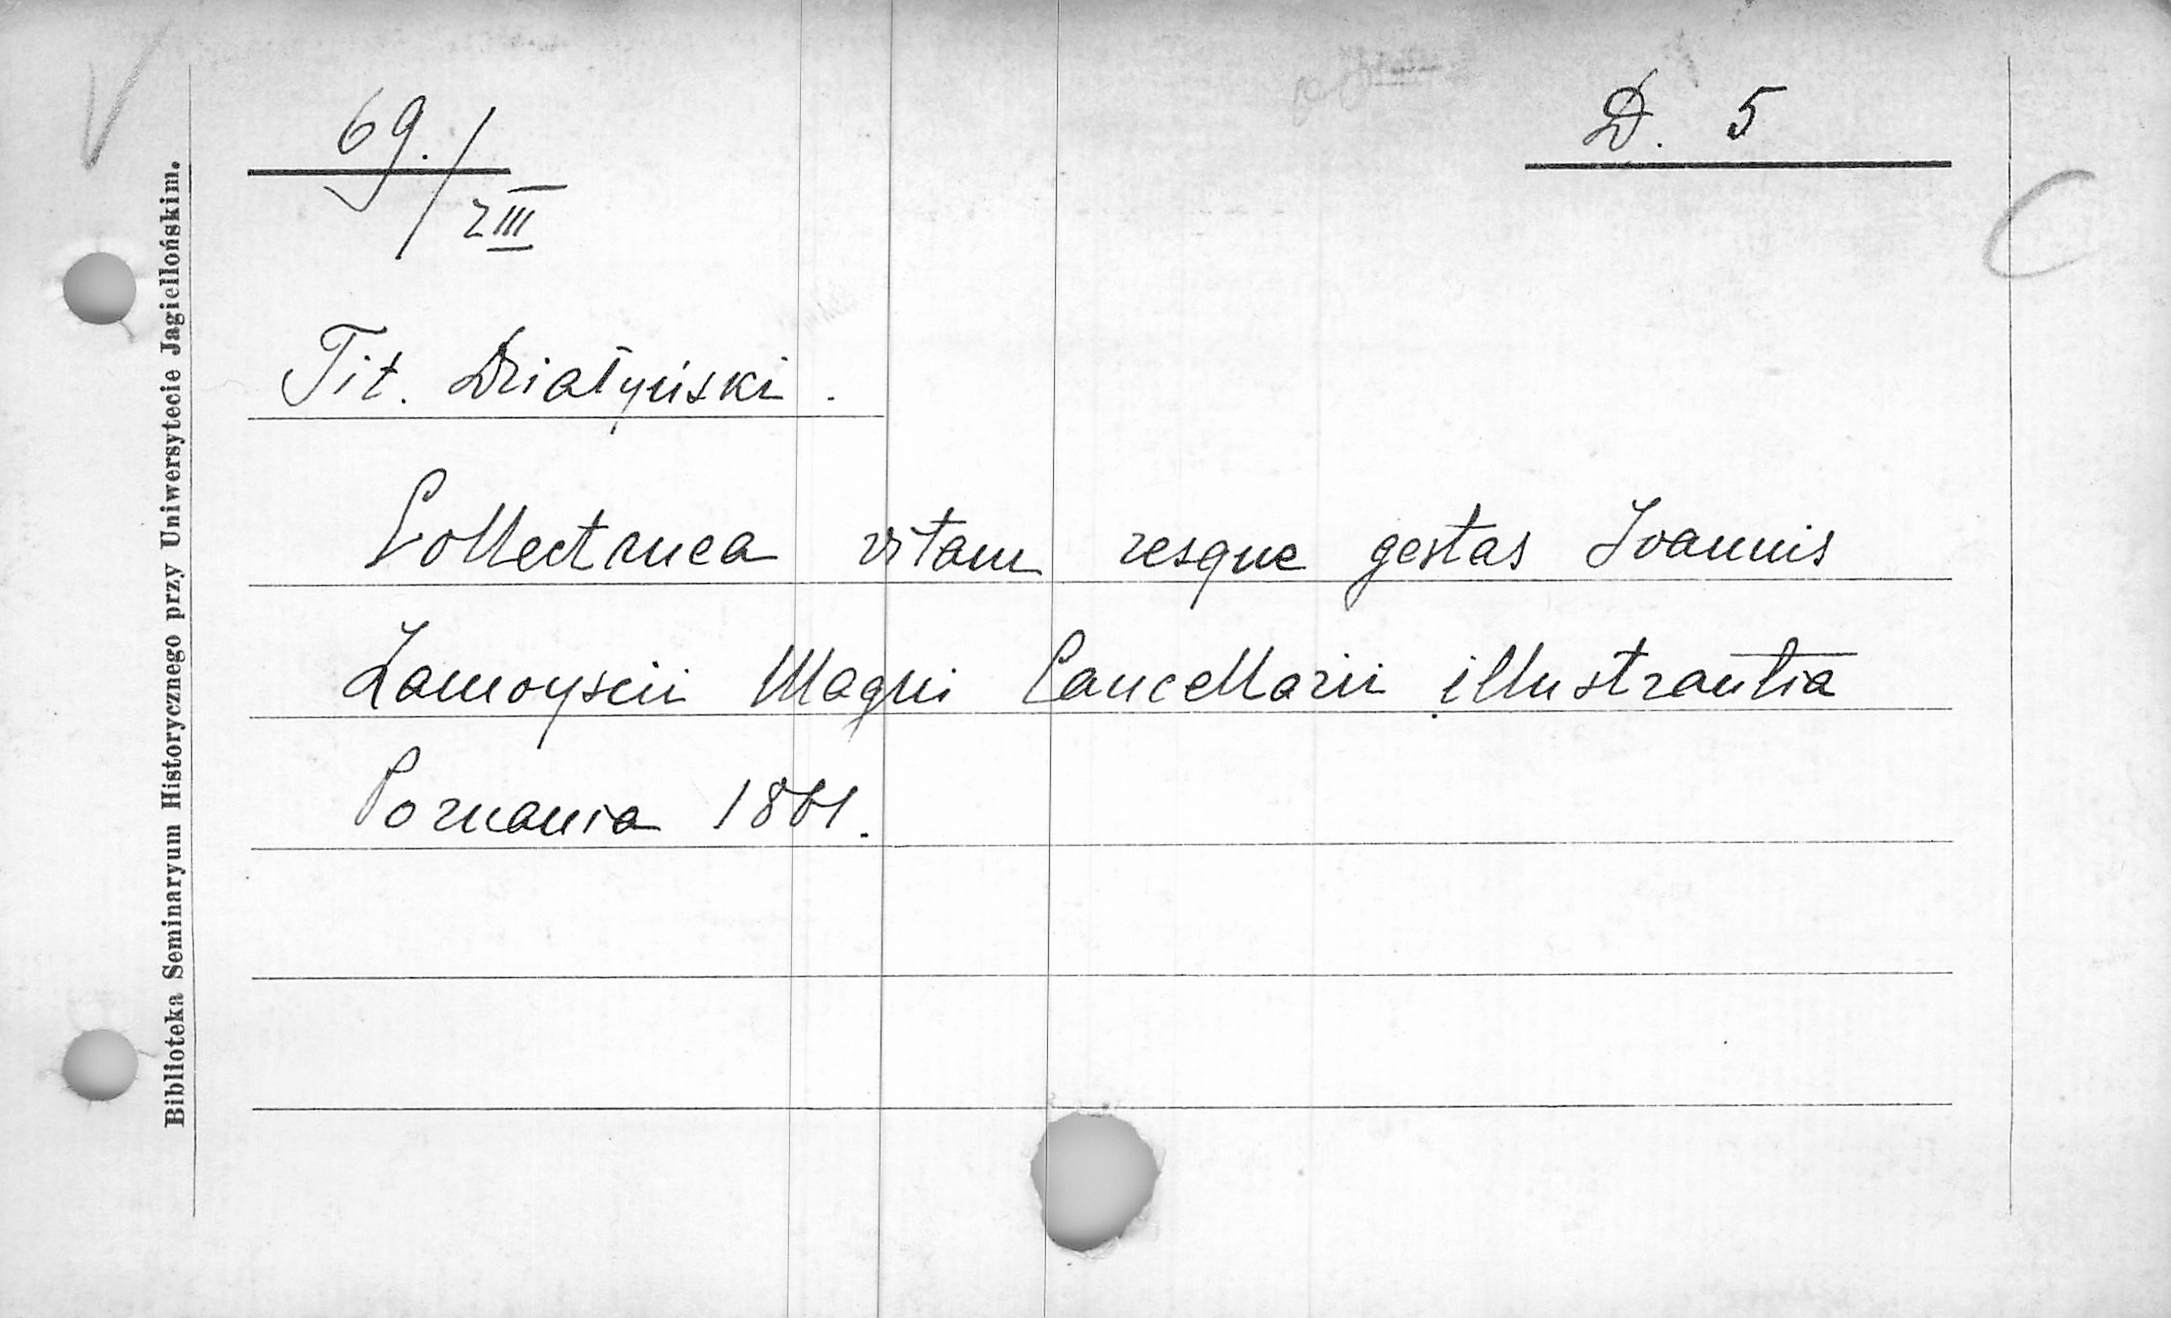 69./z III
D. 5
Tit. Działyński.
Collectanea vitam resque gestas Joannis
Zamoyscii Magni Cancellarii illustrantia
Poznania 1861.
Biblioteka Seminaryum Historycznego przy Uniwersytecie Jagiellońskim.